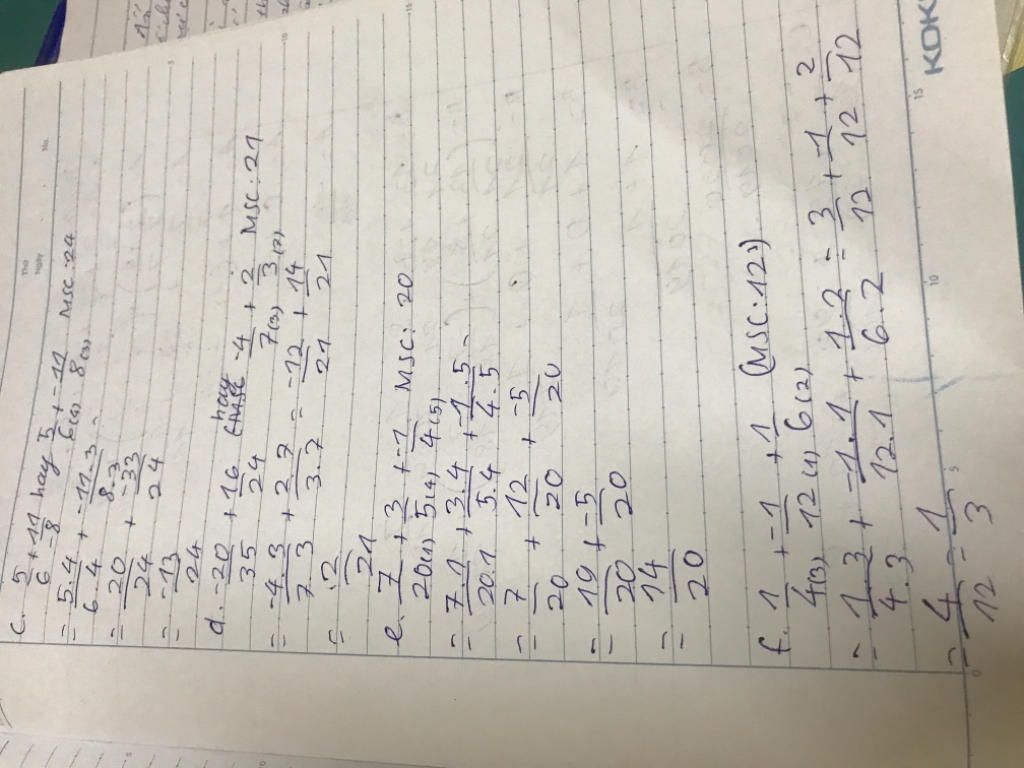 Thứ
Ngày
No.
c. 5/6 + 11/-8 hay 5/6(4) + -11/8(3) MSC: 24
= 5.4/6.4 + -11.3/8.3 =
= 20/24 + -33/24
= -13/24
d. -20/35 + 16/24 hay -4/7(3) + 2/3(7) MSC: 21
= -4.3/7.3 + 2.7/3.7 = -12/21 + 14/21
= 2/21
e. 7/20(1) + 3/5(4) + -1/4(5) MSC: 20
= 7.1/20.1 + 3.4/5.4 + -1.5/4.5 =
= 7/20 + 12/20 + -5/20
= 19/20 + -5/20
= 14/20
f. 1/4(3) + -1/12(1) + 1/6(2) (MSC: 12)
= 1.3/4.3 + -1.1/12.1 + 1.2/6.2 = 3/12 + -1/12 + 2/12
= 4/12 = 1/3
0 5 10 15